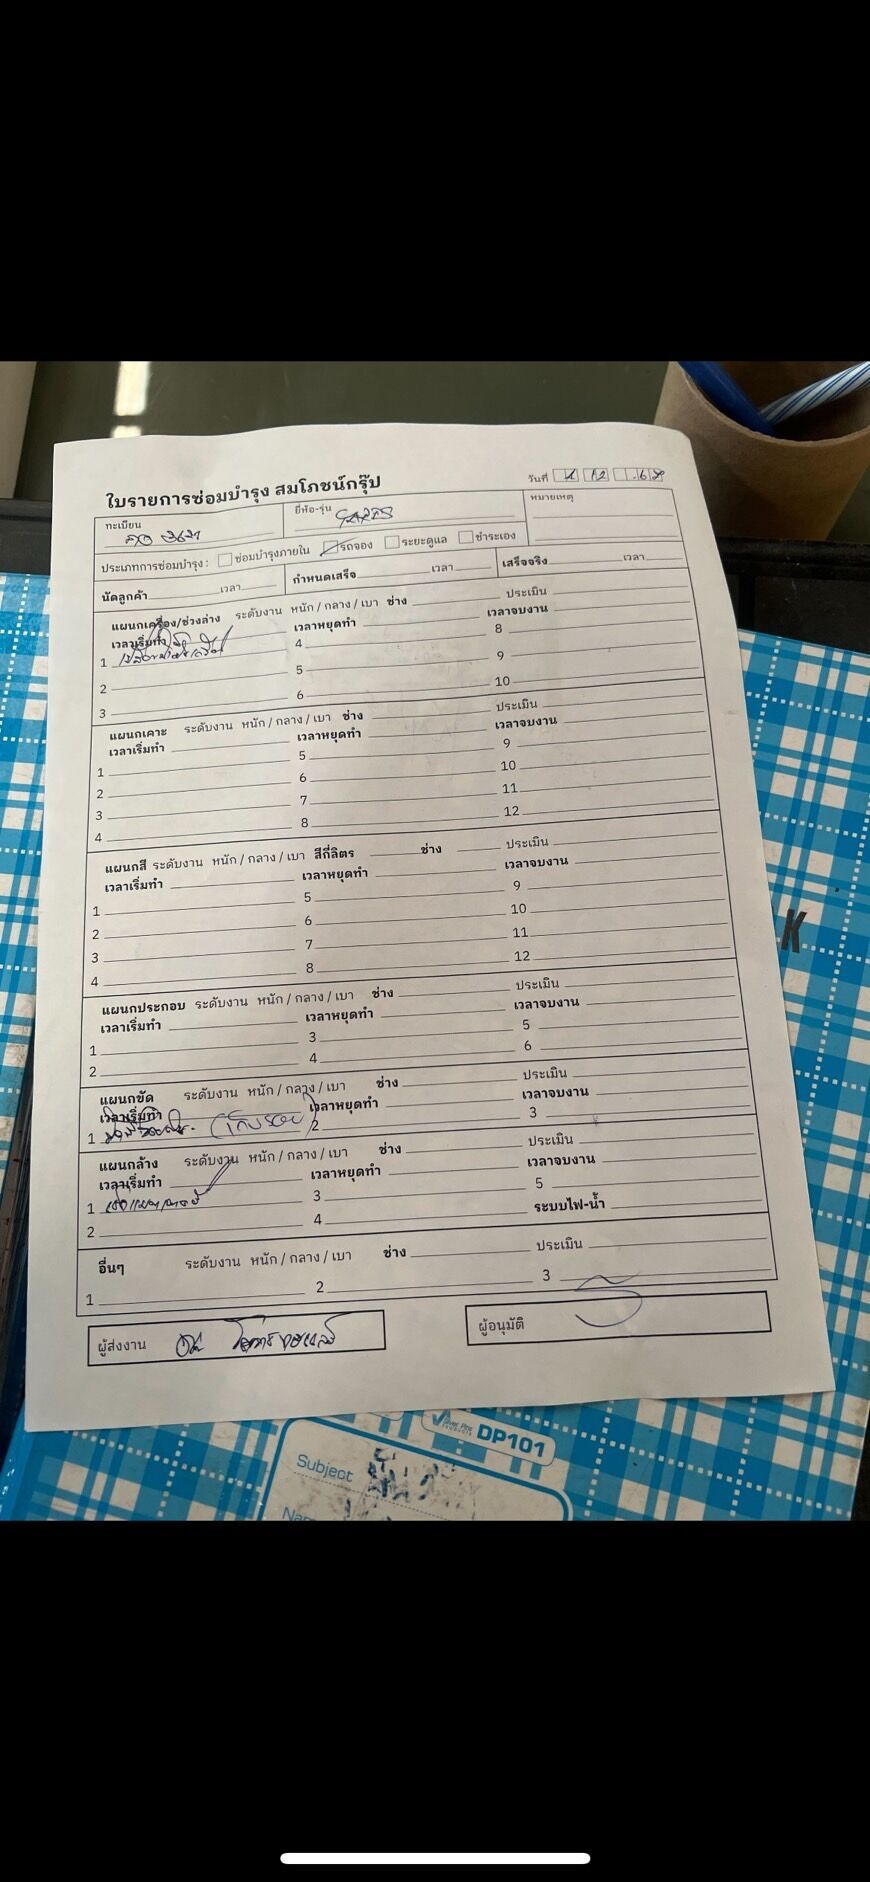 ใบรายการซ่อมบำรุง สมโภชน์กรุ๊ป
วันที่ 4 12 68
ทะเบียน
ยี่ห้อ-รุ่น YARIS
หมายเหตุ
ประเภทการซ่อมบำรุง : ซ่อมบำรุงภายใน รถจอง ระยะดูแล ชำระเอง
นัดลูกค้า เวลา กำหนดเสร็จ เวลา เสร็จจริง เวลา
แผนกเครื่อง/ช่วงล่าง ระดับงาน หนัก / กลาง / เบา ช่าง ประเมิน
เวลาเริ่มทำ เวลาหยุดทำ เวลาจบงาน
1 4 8
2 5 9
3 6 10
แผนกเคาะ ระดับงาน หนัก / กลาง / เบา ช่าง ประเมิน
เวลาเริ่มทำ เวลาหยุดทำ เวลาจบงาน
1 5 9
2 6 10
3 7 11
4 8 12
แผนกสี ระดับงาน หนัก / กลาง / เบา สีกี่ลิตร ช่าง ประเมิน
เวลาเริ่มทำ เวลาหยุดทำ เวลาจบงาน
1 5 9
2 6 10
3 7 11
4 8 12
แผนกประกอบ ระดับงาน หนัก / กลาง / เบา ช่าง ประเมิน
เวลาเริ่มทำ เวลาหยุดทำ เวลาจบงาน
1 3 5
2 4 6
แผนกขัด ระดับงาน หนัก / กลาง / เบา ช่าง ประเมิน
เวลาเริ่มทำ เวลาหยุดทำ เวลาจบงาน
1 (เก็บรอย) 2 3
แผนกล้าง ระดับงาน หนัก / กลาง / เบา ช่าง ประเมิน
เวลาเริ่มทำ เวลาหยุดทำ เวลาจบงาน
1 3 5
2 4 ระบบไฟ-น้ำ
อื่นๆ ระดับงาน หนัก / กลาง / เบา ช่าง ประเมิน
1 2 3
ผู้ส่งงาน
ผู้อนุมัติ
K
DP101
Subject